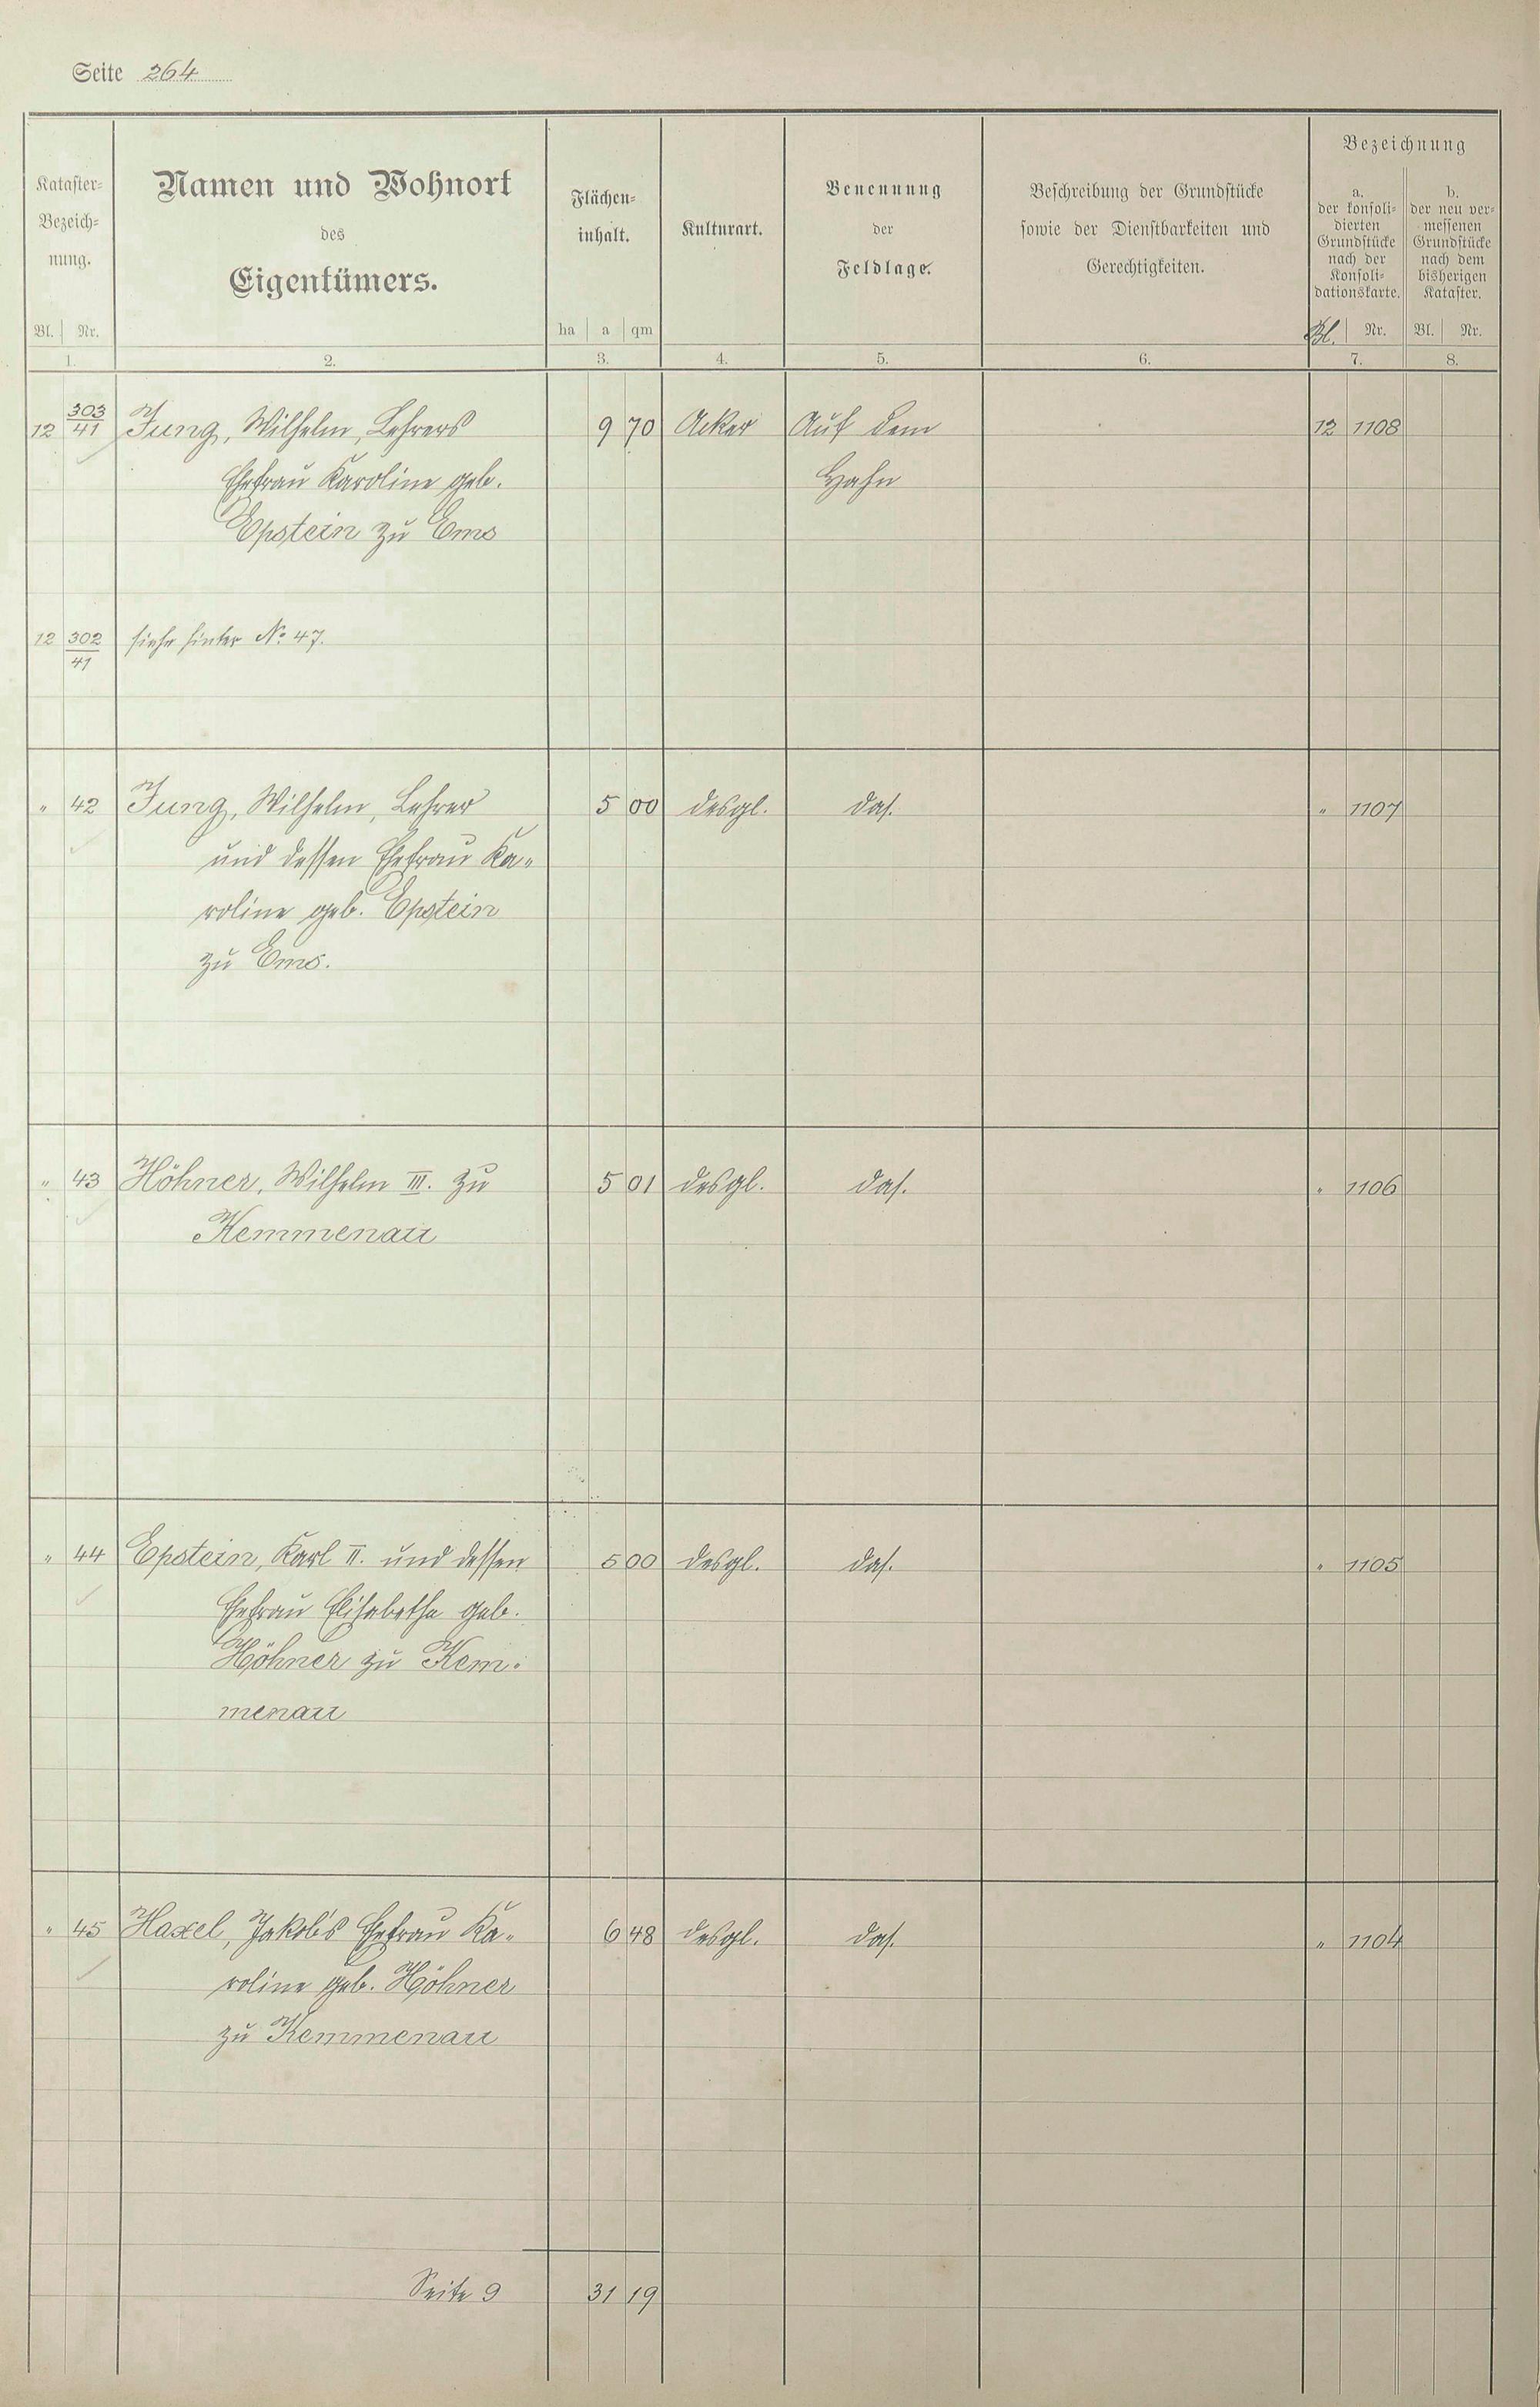 Seite 264
Kataster-
Bezeich-
nung.
Bl. Nr.
1.
Namen und Wohnort
des
Eigentümers.
2.
Flächen-
inhalt.
ha a qm
3.
Kulturart.
4.
Benennung
der
Feldlage.
5.
Beschreibung der Grundstücke
sowie der Dienstbarkeiten und
Gerechtigkeiten.
6.
Bezeichnung
a.
der konsoli-
dierten
Grundstücke
nach der
Konsoli-
dationskarte.
Bl. Nr.
7.
b.
der neu ver-
messenen
Grundstücke
nach dem
bisherigen
Kataster.
Bl. Nr.
8.
12 303/41 Jung, Wilhelm, Lehrers 9 70 Acker Auf dem 12 1108
Ehefrau Karoline geb. Hahn
Epstein zu Ems
12 302/41 siehe hinter No 47.
" 42 Jung, Wilhelm, Lehrer 5 00 desgl. das. " 1107
und dessen Ehefrau Ka-
roline geb. Epstein
zu Ems.
" 43 Höhner, Wilhelm III. zu 5 01 desgl. das. " 1106
Kemmenau
" 44 Epstein, Karl II. und dessen 5 00 desgl. das. " 1105
Ehefrau Elisabetha geb.
Höhner zu Kem-
menau
" 45 Haxel, Jakob's Ehefrau Ka- 6 48 desgl. das. " 1104
roline geb. Höhner
zu Kemmenau
Seite 9 31 19